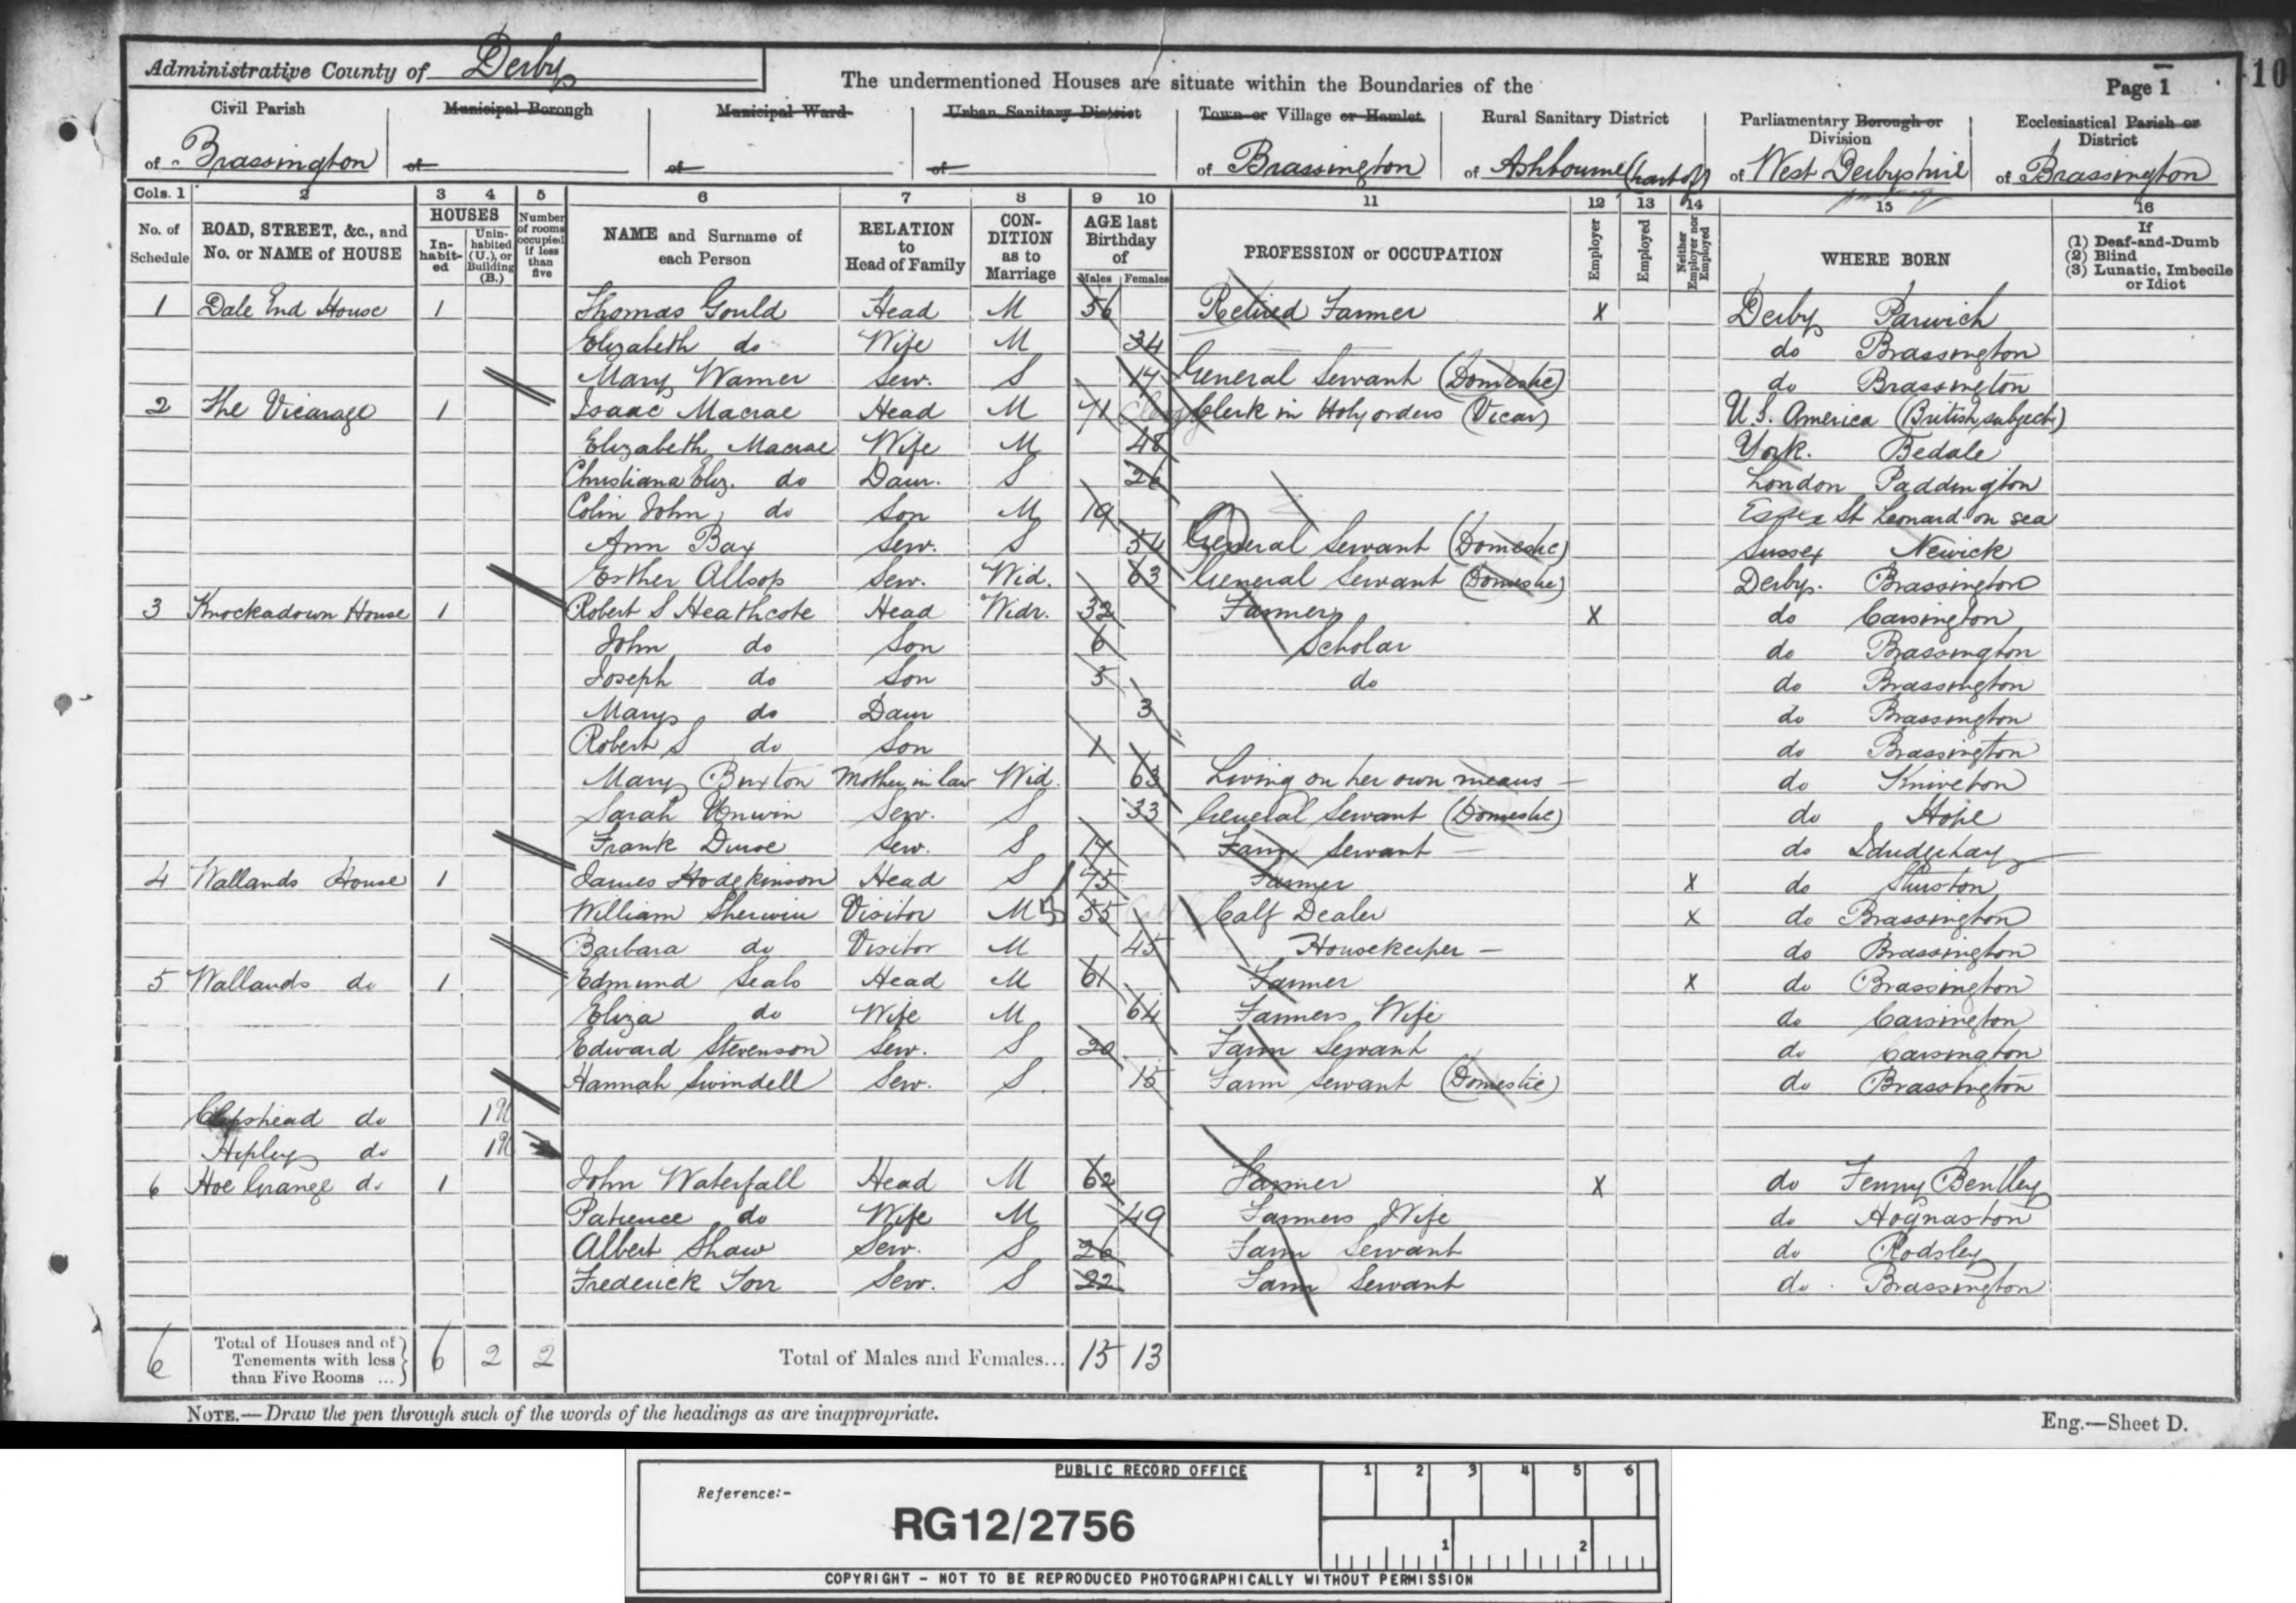 Administrative County of Derby
The undermentioned Houses are situate within the Boundaries of the
Page 1
10
Civil Parish of Brassington
Municipal Borough of
Municipal Ward of
Urban Sanitary District of
Town or Village or Hamlet of Brassington
Rural Sanitary District of Ashbourne (part of)
Parliamentary Borough or Division of West Derbyshire
Ecclesiastical Parish or District of Brassington
Cols. 1 2 3 4 5 6 7 8 9 10 11 12 13 14 15 16
No. of Schedule
ROAD, STREET, &c., and No. or NAME of HOUSE
HOUSES
Inhabited
Uninhabited (U.), or Building (B.)
Number of rooms occupied if less than five
NAME and Surname of each Person
RELATION to Head of Family
CONDITION as to Marriage
AGE last Birthday of
Males Females
PROFESSION or OCCUPATION
Employer
Employed
Neither Employer nor Employed
WHERE BORN
If (1) Deaf-and-Dumb (2) Blind (3) Lunatic, Imbecile or Idiot
1 Dale End House 1 Thomas Gould Head M 56 Retired Farmer X Derby Parwich
Elizabeth do Wife M 34 do Brassington
Mary Warner Serv. S 14 General Servant (Domestic) do Brassington
2 The Vicarage 1 Isaac Macrae Head M 71 Clerk in Holy orders (Vicar) U.S. America (British subject)
Elizabeth Macrae Wife M 48 York. Bedale
Christiana Eliz. do Daur. S 26 London Paddington
Colin John do Son M 19 St Leonard on sea
Ann Bax Serv. S 54 General Servant (Domestic) Sussex Newick
Esther Allsop Serv. Wid. 63 General Servant (Domestic) Derby. Brassington
3 Knockadown House 1 Robert S Heathcote Head Widr. 32 Farmer X do Carsington
John do Son 6 Scholar do Brassington
Joseph do Son 5 do do Brassington
Mary do Daur 3 do Brassington
Robert S do Son 1 do Brassington
Mary Buxton Mother in law Wid. 63 Living on her own means — do Kniveton
Sarah Unwin Serv. S 33 General Servant (Domestic) do Hope
Frank Serv. S 17 Farm Servant — do Idridgehay
4 Wallands House 1 James Hodgkinson Head S 75 Farmer X do Sturston
William Sherwin Visitor M 55 Calf Dealer X do Brassington
Barbara do Visitor M 45 Housekeeper — do Brassington
5 Wallands do 1 Edmund Seals Head M 61 Farmer X do Brassington
Eliza do Wife M 64 Farmers Wife do Carsington
Edward Stevenson Serv. S 20 Farm Servant do Carsington
Hannah Swindell Serv. S 15 Farm Servant (Domestic) do Brassington
do 1
Hipley do 1
6 Hoe Grange do 1 John Waterfall Head M 62 Farmer X do Fenny Bentley
Patience do Wife M 49 Farmers Wife do Hognaston
Albert Shaw Serv. S 26 Farm Servant do Rodsley
Frederick Torr Serv. S 22 Farm Servant do Brassington
6 Total of Houses and of Tenements with less than Five Rooms ... 6 2 2 Total of Males and Females... 15 13
NOTE.—Draw the pen through such of the words of the headings as are inappropriate.
Eng.—Sheet D.
PUBLIC RECORD OFFICE
1 2 3 4 5 6
Reference:-
RG12/2756
1 2
COPYRIGHT - NOT TO BE REPRODUCED PHOTOGRAPHICALLY WITHOUT PERMISSION